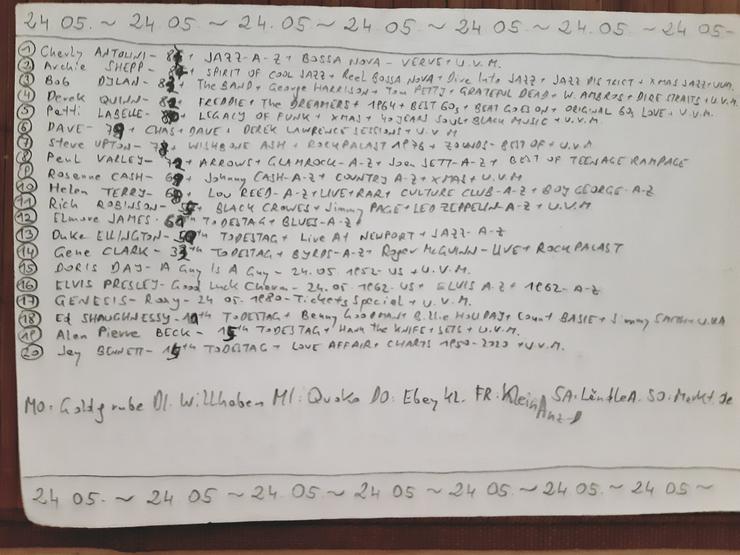 24 05. ~ 24 05. ~ 24. 05 ~ 24 05. ~ 24 05. ~ 24 05 ~ 24 05-
① Cheryl ANTOLINI- + JAZZ-A-Z + BOSSA NOVA - VERVE + U.V.M.
② Archie SHEPP - + SPIRIT OF COOL JAZZ + Reel BOSSA NOVA + Dive Into JAZZ + JAZZ DISTRICT + XMAS JAZZ+UVM.
③ Bob DYLAN- + The BAND + George HARRISON + Tom PETTY + GRATEFUL DEAD + W. AMBROS + DIRE STRAITS + U.V.M.
④ Derek QUINN- + FREDDIE + The DREAMERS + 1964 + BEST 60s + BEAT GOES ON + ORIGINAL 60s LOVE + U.V.M.
⑤ Patti LABELLE- + LEGACY OF FUNK + XMAS + 40 YEARS SOUL + BLACK MUSIC + U.V.M.
⑥ DAVE- + CHAS + DAVE + DEREK LAWRENCE SESSIONS + U.V.M
⑦ Steve UPTON- + WISHBONE ASH + ROCKPALAST 1976 + ZOUNDS- BEST OF + U.V.M
⑧ Paul VARLEY- + ARROWS + GLAMROCK-A-Z + Joan JETT-A-Z + BEST OF TEENAGE RAMPAGE
⑨ Rosanne CASH- + Johnny CASH-A-Z + COUNTRY A-Z + XMAS + U.V.M
⑩ Helen TERRY- + LOU REED-A-Z+LIVE+RAR + CULTURE CLUB-A-Z + BOY GEORGE-A-Z
⑪ Rich ROBINSON- + BLACK CROWES + Jimmy PAGE + LED ZEPPELIN-A-Z + U.V.M.
⑫ Elmore JAMES- th TODESTAG + BLUES-A-Z+
⑬ Duke ELLINGTON- th TODESTAG + Live At NEWPORT + JAZZ-A-Z
⑭ Gene CLARK- th TODESTAG + BYRDS-A-Z + Roger McGUINN-LIVE + ROCKPALAST
⑮ DORIS DAY- A Guy IS A Guy - 24.05.1952-US + U.V.M.
⑯ ELVIS PRESLEY- Good Luck Charm - 24.05.1962-US + ELVIS A-Z + 1962-A-Z
⑰ GENESIS- Roxy- 24 05. 1980- Tickets Special + U.V.M.
⑱ Ed SHAUGHNESSY- th TODESTAG + Benny GOODMAN + Billie HOLIDAY + Count BASIE + Jimmy SMITH+
⑲ Alan Pierre BECK- th TODESTAG + HANK the KNIFE + JETS + U.V.M.
⑳ Jay BENNETT- th TODESTAG + LOVE AFFAIR + CHARTS 1950-2020 + U.V.M.
MO: Goldgrube DI: Willhaben MI: Quoka DO: Ebay Kl. FR: Klein Anz- SA: LändleA. SO: Markt de
24 05. ~ 24 05 ~ 24 05 ~ 24 05 ~ 24 05. ~ 24 05 ~